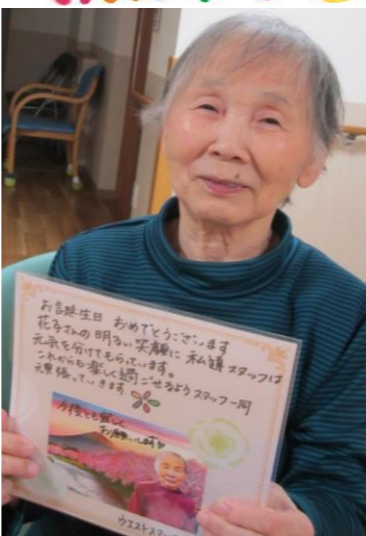 お誕生日 おめでとうございます
花子さんの明るい笑顔に 私達スタッフは
元気を分けてもらっています。
これからも楽しく過ごせるようスタッフ一同
頑張っていきます
今後とも宜しく
お願いします
ウエストスタッフ